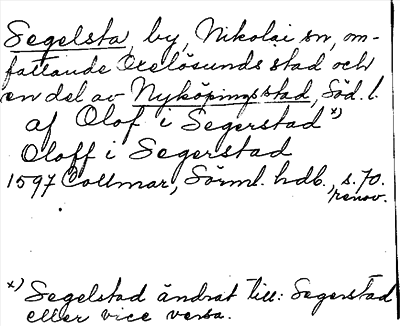 Segelsta, by, Nikolai sn, om-
fattande Oxelösunds stad och
en del av Nyköpings stad, Söd. l.
af Olof i Segerstad x)
Oloff i Segerstad
1597 Collmar, Sörml. hdl., s. 70.
renov.
x) Segelstad ändrat till: Segerstad
eller vice versa.